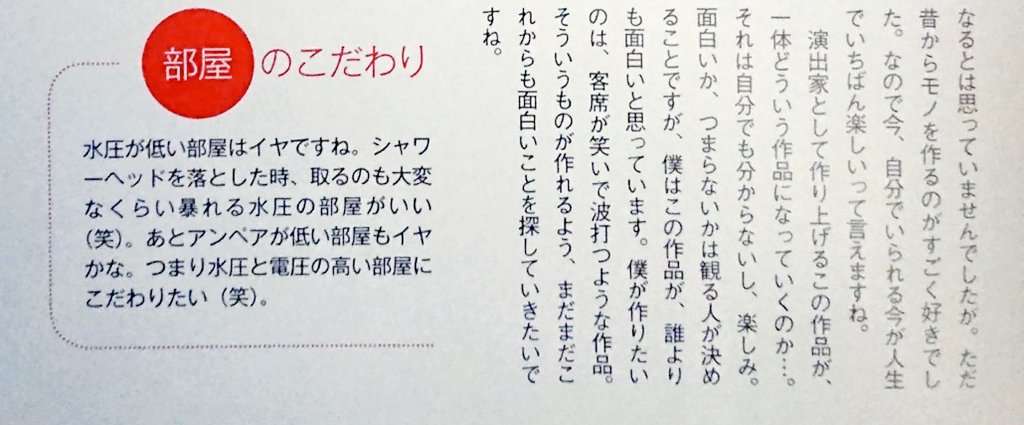 なるとは思っていませんでしたが。ただ
昔からモノを作るのがすごく好きでし
た。なので今、自分でいられる今が人生
でいちばん楽しいって言えますね。
演出家として作り上げるこの作品が、
一体どういう作品になっていくのか…。
それは自分でも分からないし、楽しみ。
面白いか、つまらないかは観る人が決め
ることですが、僕はこの作品が、誰より
も面白いと思っています。僕が作りたい
のは、客席が笑いで波打つような作品。
そういうものが作れるよう、まだまだこ
れからも面白いことを探していきたいで
すね。
部屋のこだわり
水圧が低い部屋はイヤですね。シャワ
ーヘッドを落とした時、取るのも大変
なくらい暴れる水圧の部屋がいい
(笑)。あとアンペアが低い部屋もイヤ
かな。つまり水圧と電圧の高い部屋に
こだわりたい(笑)。